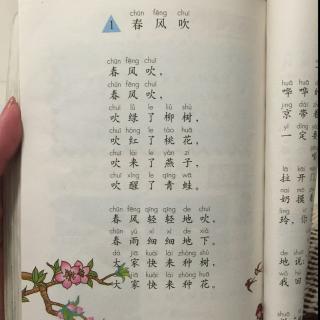 chūn fēng chuī
1 春风吹
chūn fēng chuī
春风吹，
chūn fēng chuī
春风吹，
chuī lǜ le liǔ shù
吹绿了柳树，
chuī hóng le táo huā
吹红了桃花，
chuī lái le yàn zi
吹来了燕子，
chuī xǐng le qīng wā
吹醒了青蛙。
chūn fēng qīng qīng de chuī
春风轻轻地吹，
chūn yǔ xì xì de xià
春雨细细地下。
dà jiā kuài lái zhòng shù
大家快来种树，
dà jiā kuài lái zhòng huā
大家快来种花。
huā
哗哗
jīng dài
京带
yí dìng
一定
lā kāi
拉开
nǎi mō
奶摸
líng nǐ
玲，你
de shuō
地说：
wǒ huí
我回